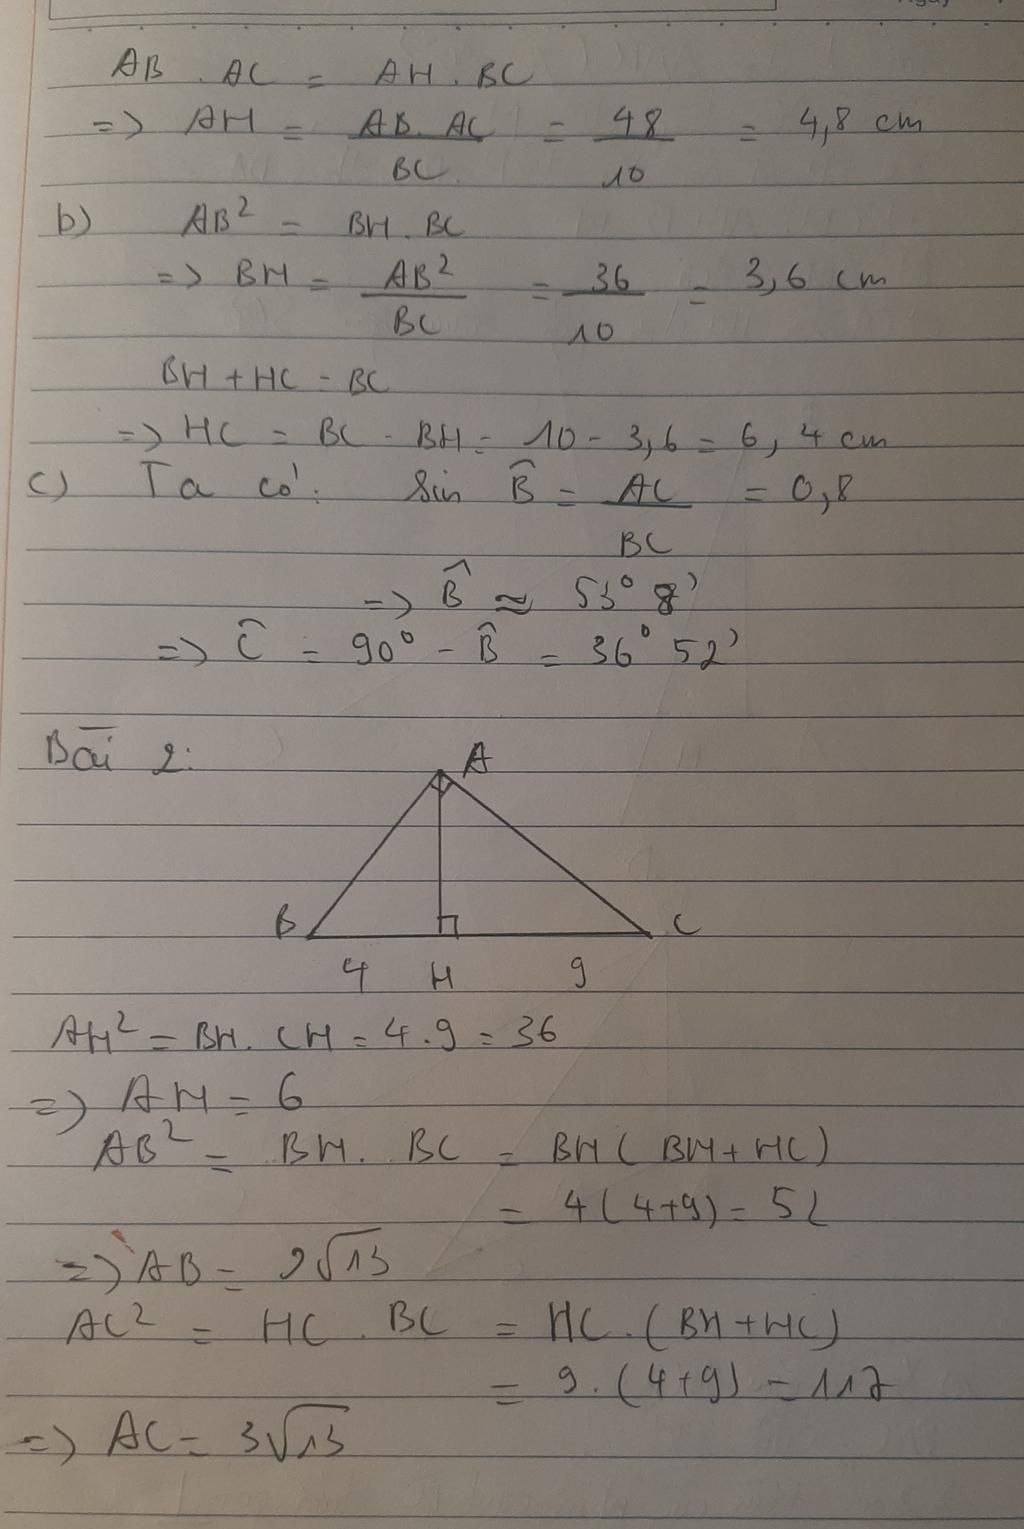 AB . AC = AH . BC
=> AH = AB. AC / BC = 48 / 10 = 4,8 cm
b) AB² = BH . BC
=> BH = AB² / BC = 36 / 10 = 3,6 cm
BH + HC = BC
=> HC = BC - BH = 10 - 3,6 = 6,4 cm
c) Ta có: Sin B̂ = AC / BC = 0,8
=> B̂ ≈ 53° 8'
=> Ĉ = 90° - B̂ = 36° 52'
Bài 2:
A
B C
4 H 9
AH² = BH. CH = 4.9 = 36
=> AH = 6
AB² = BH. BC = BH ( BH + HC)
= 4(4+9) = 52
=> AB = 2√13
AC² = HC . BC = HC.(BH + HC)
= 9.(4+9) = 117
=> AC = 3√13